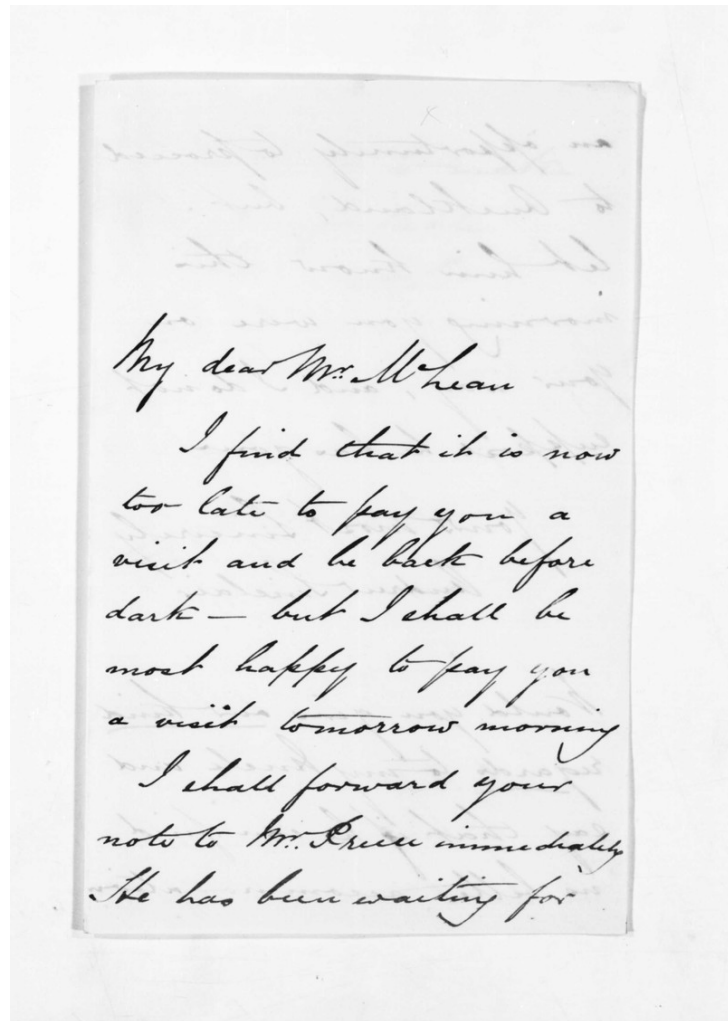 My dear Mr. McLean
I find that it is now
too late to pay you a
visit and be back before
dark — but I shall be
most happy to pay you
a visit tomorrow morning
I shall forward your
note to Mr. immediately
He has been waiting for